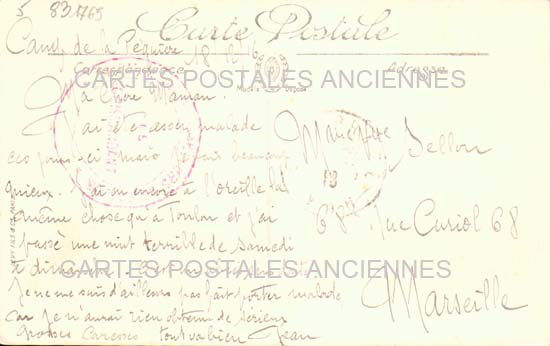 5 83 1769
Carte Postale
Camp de la 18
CARTES POSTALES ANCIENNES
Correspondance
Adresse
Modèle Déposé
Ma Chère Maman.
J'ai été assez malade
ces jours-ci mais je vais beaucoup
mieux. J'ai eu encore à l'oreille la
même chose qu'à Toulon et j'ai
passé une nuit terrible de samedi
à dimanche
Je ne me suis d'ailleurs pas fait porter malade
car je n'aurai rien obtenu de sérieux
Grosses Caresses tout va bien Jean
Mme Vve Bellon
68 Rue Curiol 68
CARTES POSTALES ANCIENNES
Marseille